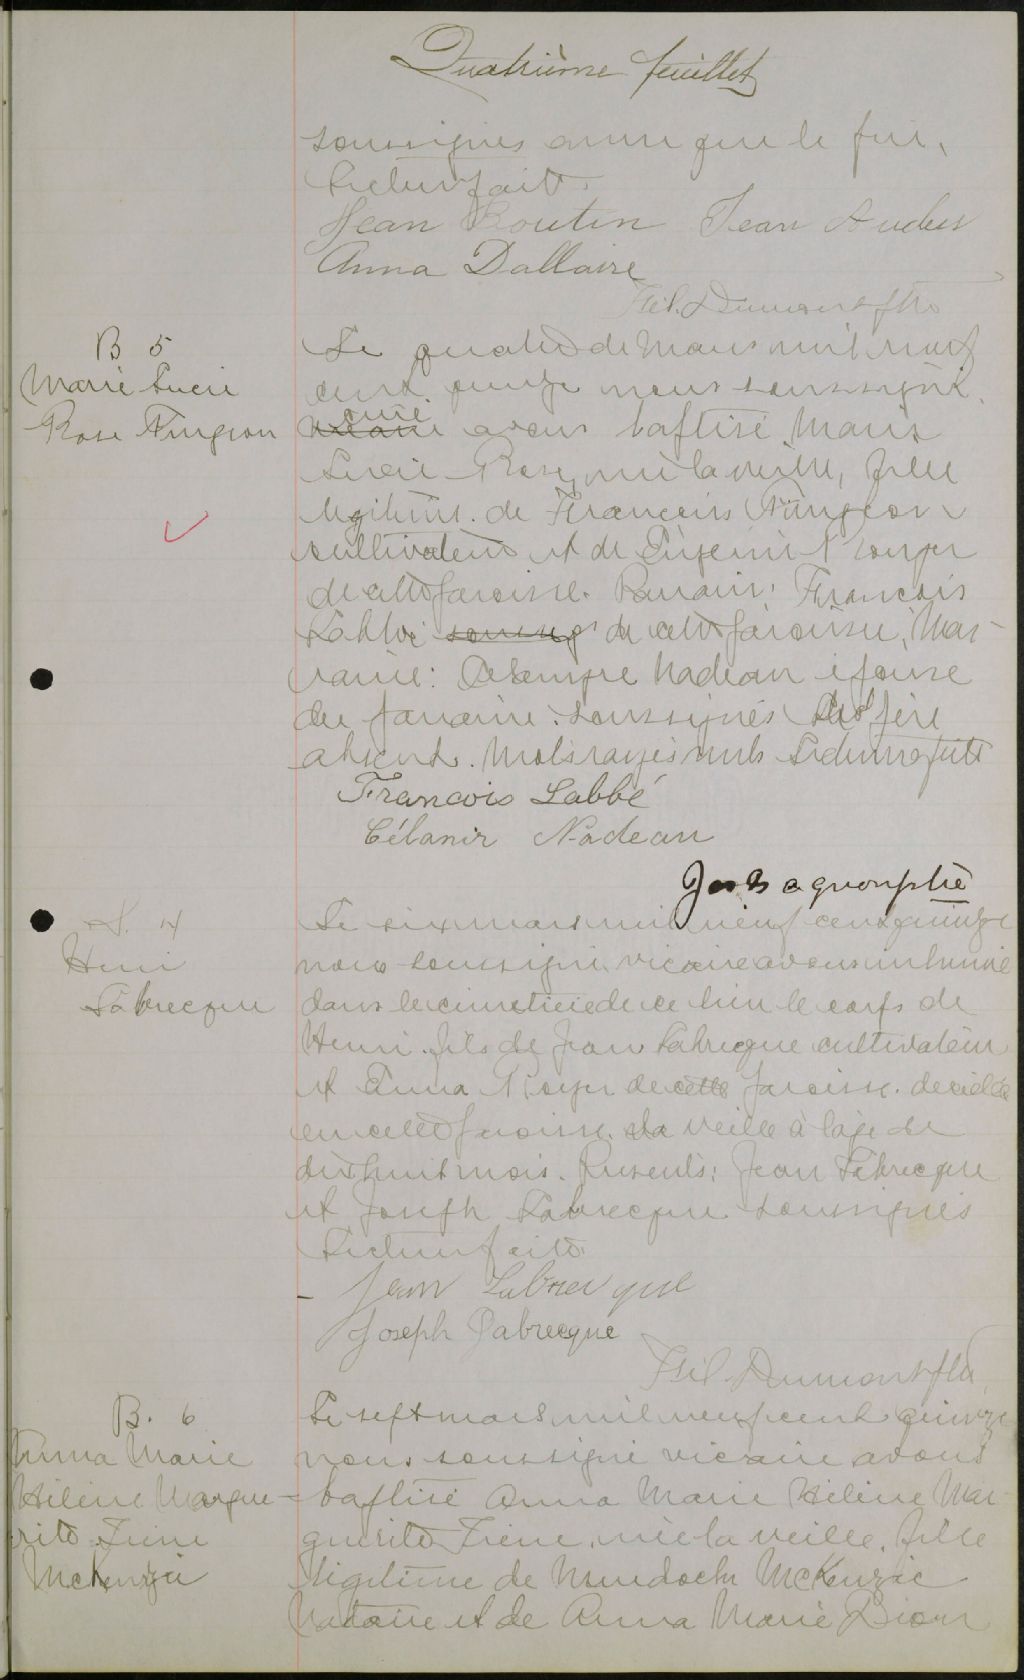 Quatrième feuillet
soussignés ainsi que le père.
Lecture faite.
Jean Boutin Jean Audet
Anna Dallaire
Fél. Dumont ptre
B 5
Marie Lucie
Rose Turgeon
Le quatre de Mars mil neuf
cent quinze nous soussigné
curé
vicaire avons baptisé Marie
Lucie Rose, née la veille, fille
légitime de François Turgeon
cultivateur et de Eugénie Royer
de cette paroisse. Parrain: François
Labbé soussig de cette paroisse, Mar-
raine: Célanire Nadeau épouse
du parrain soussignés père
absent. Mots rayés nuls Lecture faite
François Labbé
Célanir Nadeau
Jos Gagnon ptre
S. 4
Henri
Labrecque
Le six mars mil neuf cent quinze
nous soussigné vicaire avons inhumé
dans le cimetière de ce lieu le corps de
Henri fils de Jean Labrecque cultivateur
et Anna Royer de cette paroisse. décédé
en cette paroisse la veille à l'âge de
dix huit mois. Présents: Jean Labrecque
et Joseph Labrecque soussignés
Lecture faite
Jean Labrecque
Joseph Labrecque
Fél. Dumont ptre
B. 6
Anna Marie
Hélène Margue-
rite Irène
McKenzie
Le sept mars mil neuf cent quinze
nous soussigné vicaire avons
baptisé Anna Marie Hélène Mar-
guerite Irène, née la veille, fille
légitime de Murdoch McKenzie
Notaire et de Anna Marie Dion